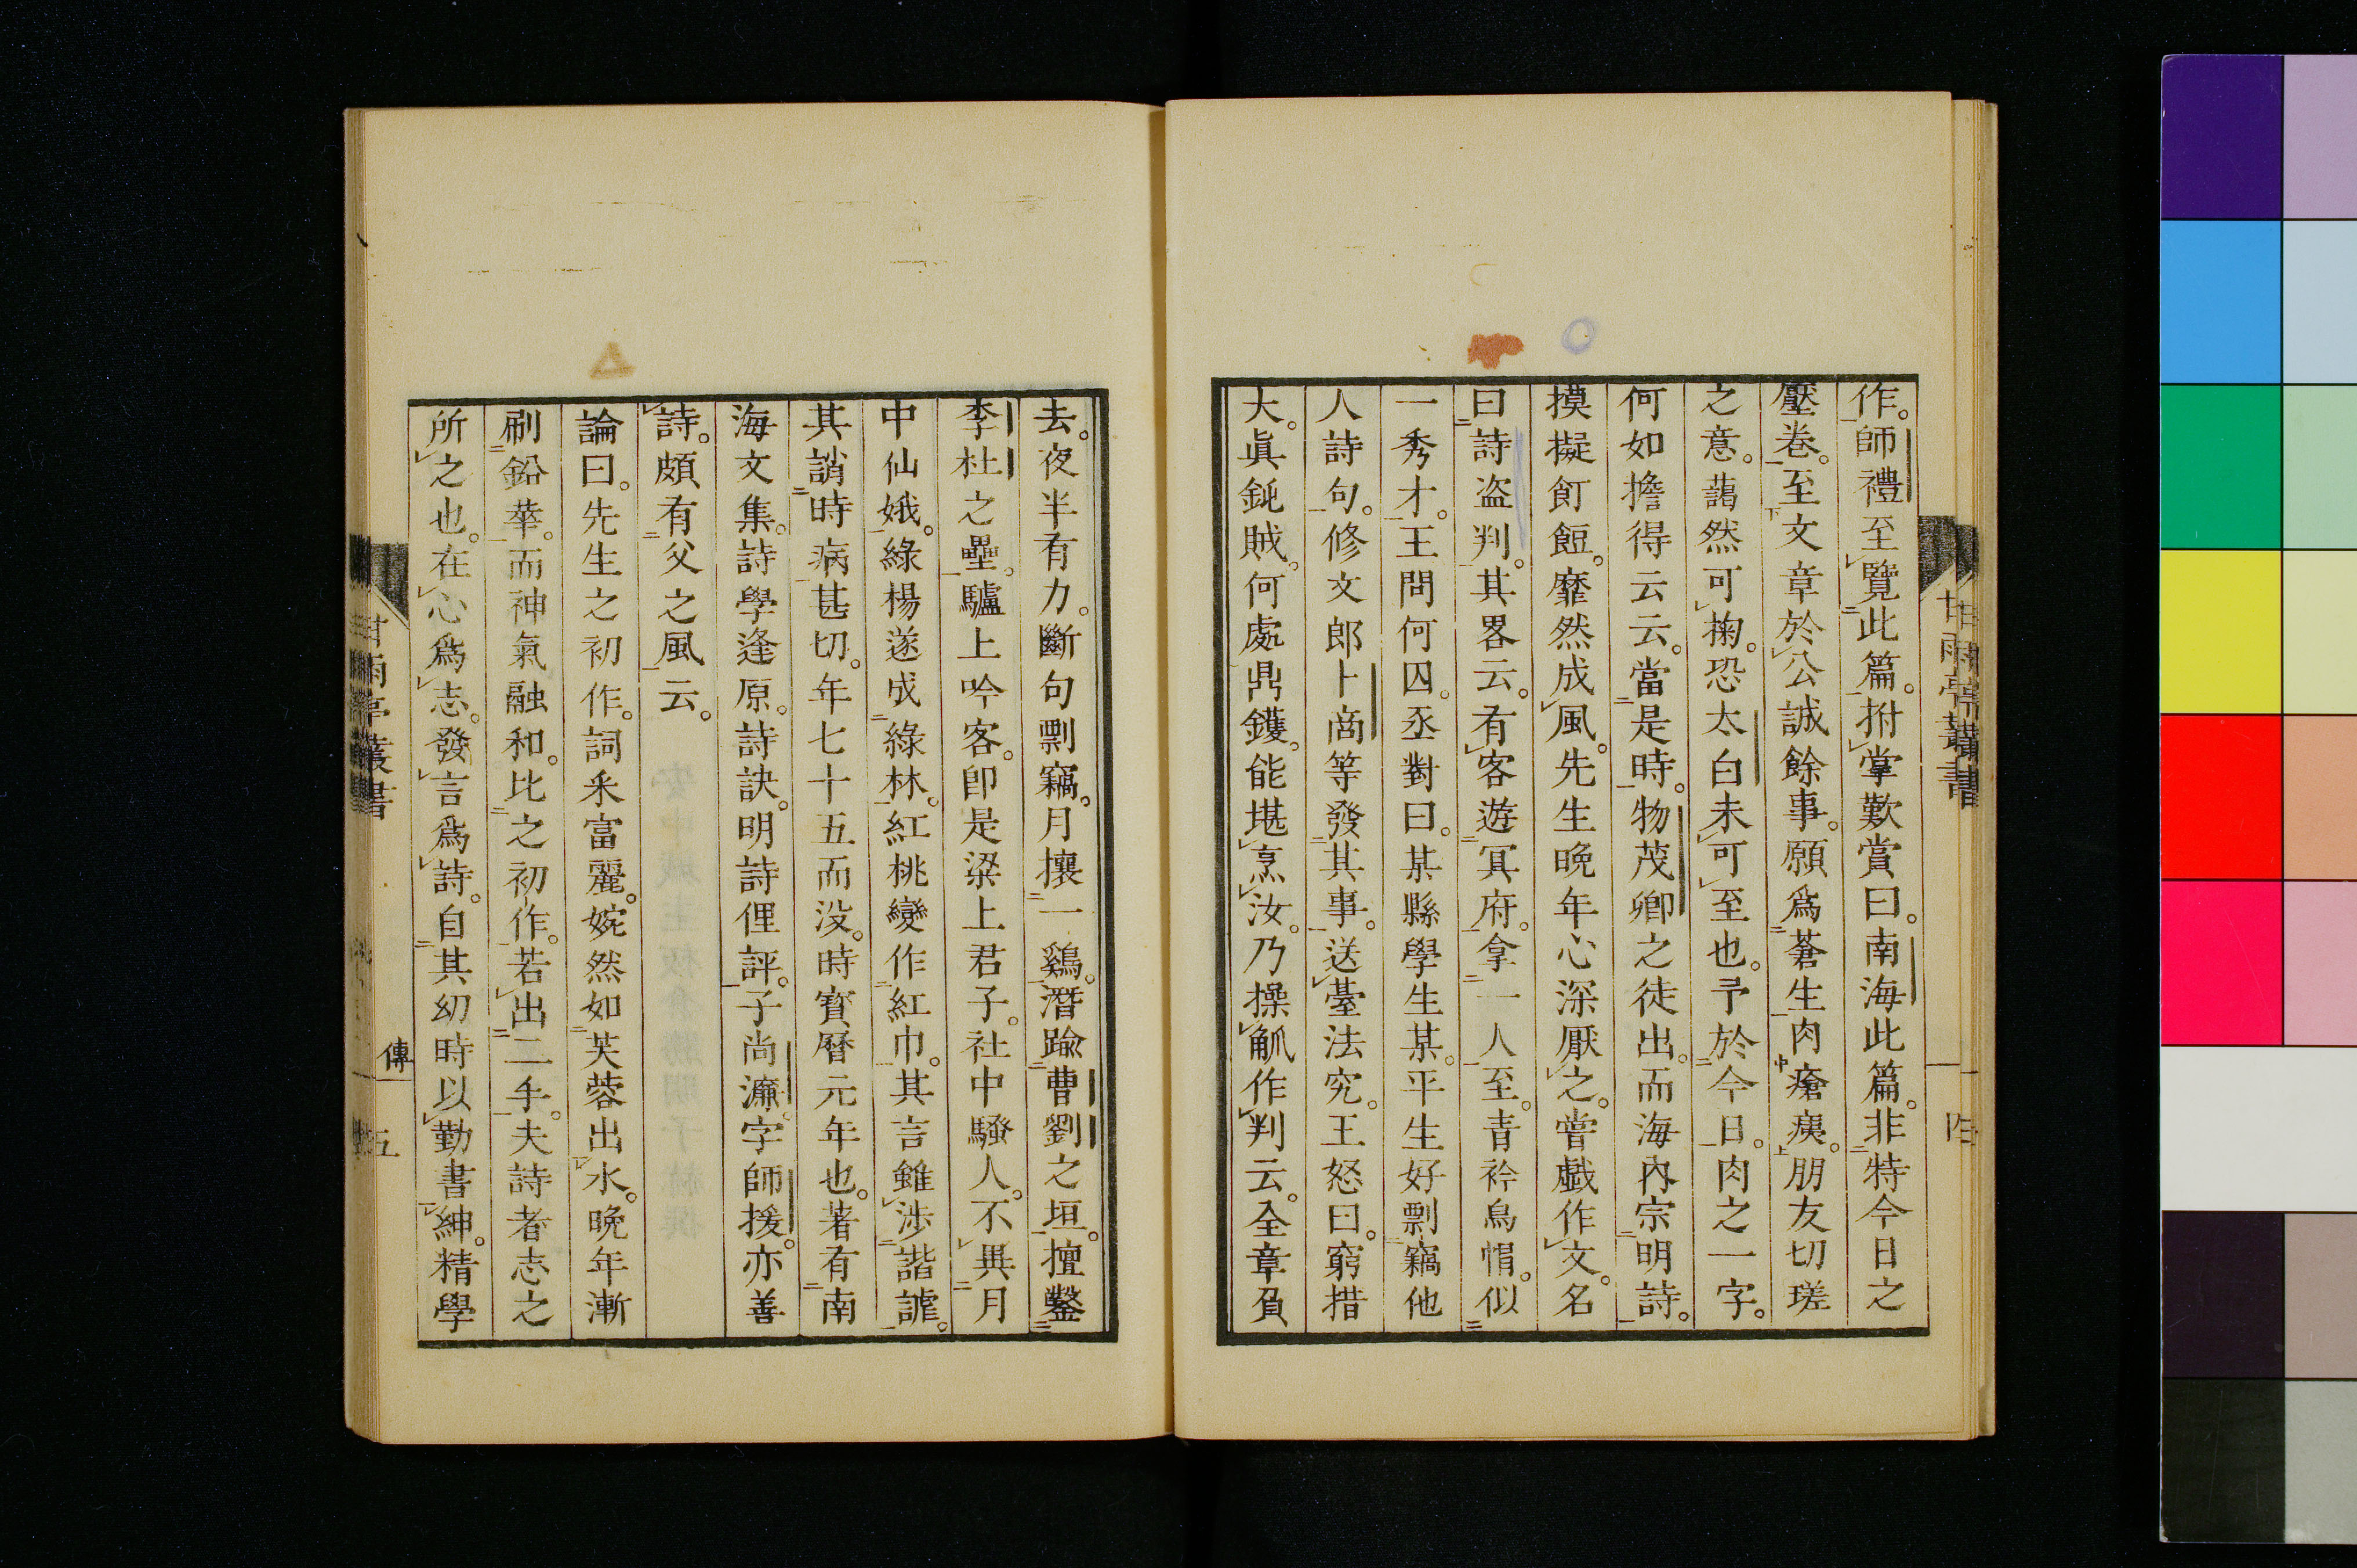 作。師禮至覽此篇。拊掌歎賞曰。南海此篇。非特今日之
壓卷。至文章於公誠餘事。願爲蒼生肉瘡痍。朋友切瑳
之意。藹然可掬。恐太白未可至也。予於今日。肉之一字。
何如擔得云云。當是時。物茂卿之徒出。而海內宗明詩。
摸擬飣餖。靡然成風。先生晚年心深厭之。嘗戲作文。名
曰詩盗判。其畧云。有客遊冥府。拿一人至。青衿烏帽。似
一秀才。王問何囚。丞對曰。某縣學生某。平生好剽竊他
人詩句。修文郎卜商等發其事。送臺法究。王怒曰。窮措
大。眞鈍賊。何處鼎鑊。能堪烹汝。乃操觚作判云。全章負
甘雨亭叢書
四
去。夜半有力。斷句剽竊。月攘一鷄。潛踰曹劉之垣。擅鑿
李杜之壘。驢上吟客。卽是梁上君子。社中騷人。不異月
中仙娥。綠楊遂成綠林。紅桃變作紅巾。其言雖涉諧謔。
其誚時病甚切。年七十五而没。時寳曆元年也。著有南
海文集。詩學逢原。詩訣。明詩俚評。子尚濂。字師援。亦善
詩。頗有父之風云。
論曰。先生之初作。詞釆富麗。婉然如芙蓉出水。晚年漸
刷鉛華。而神氣融和。比之初作。若出二手。夫詩者志之
所之也。在心爲志。發言爲詩。自其幼時以勤書紳。精學
甘雨亭叢書
傳
五